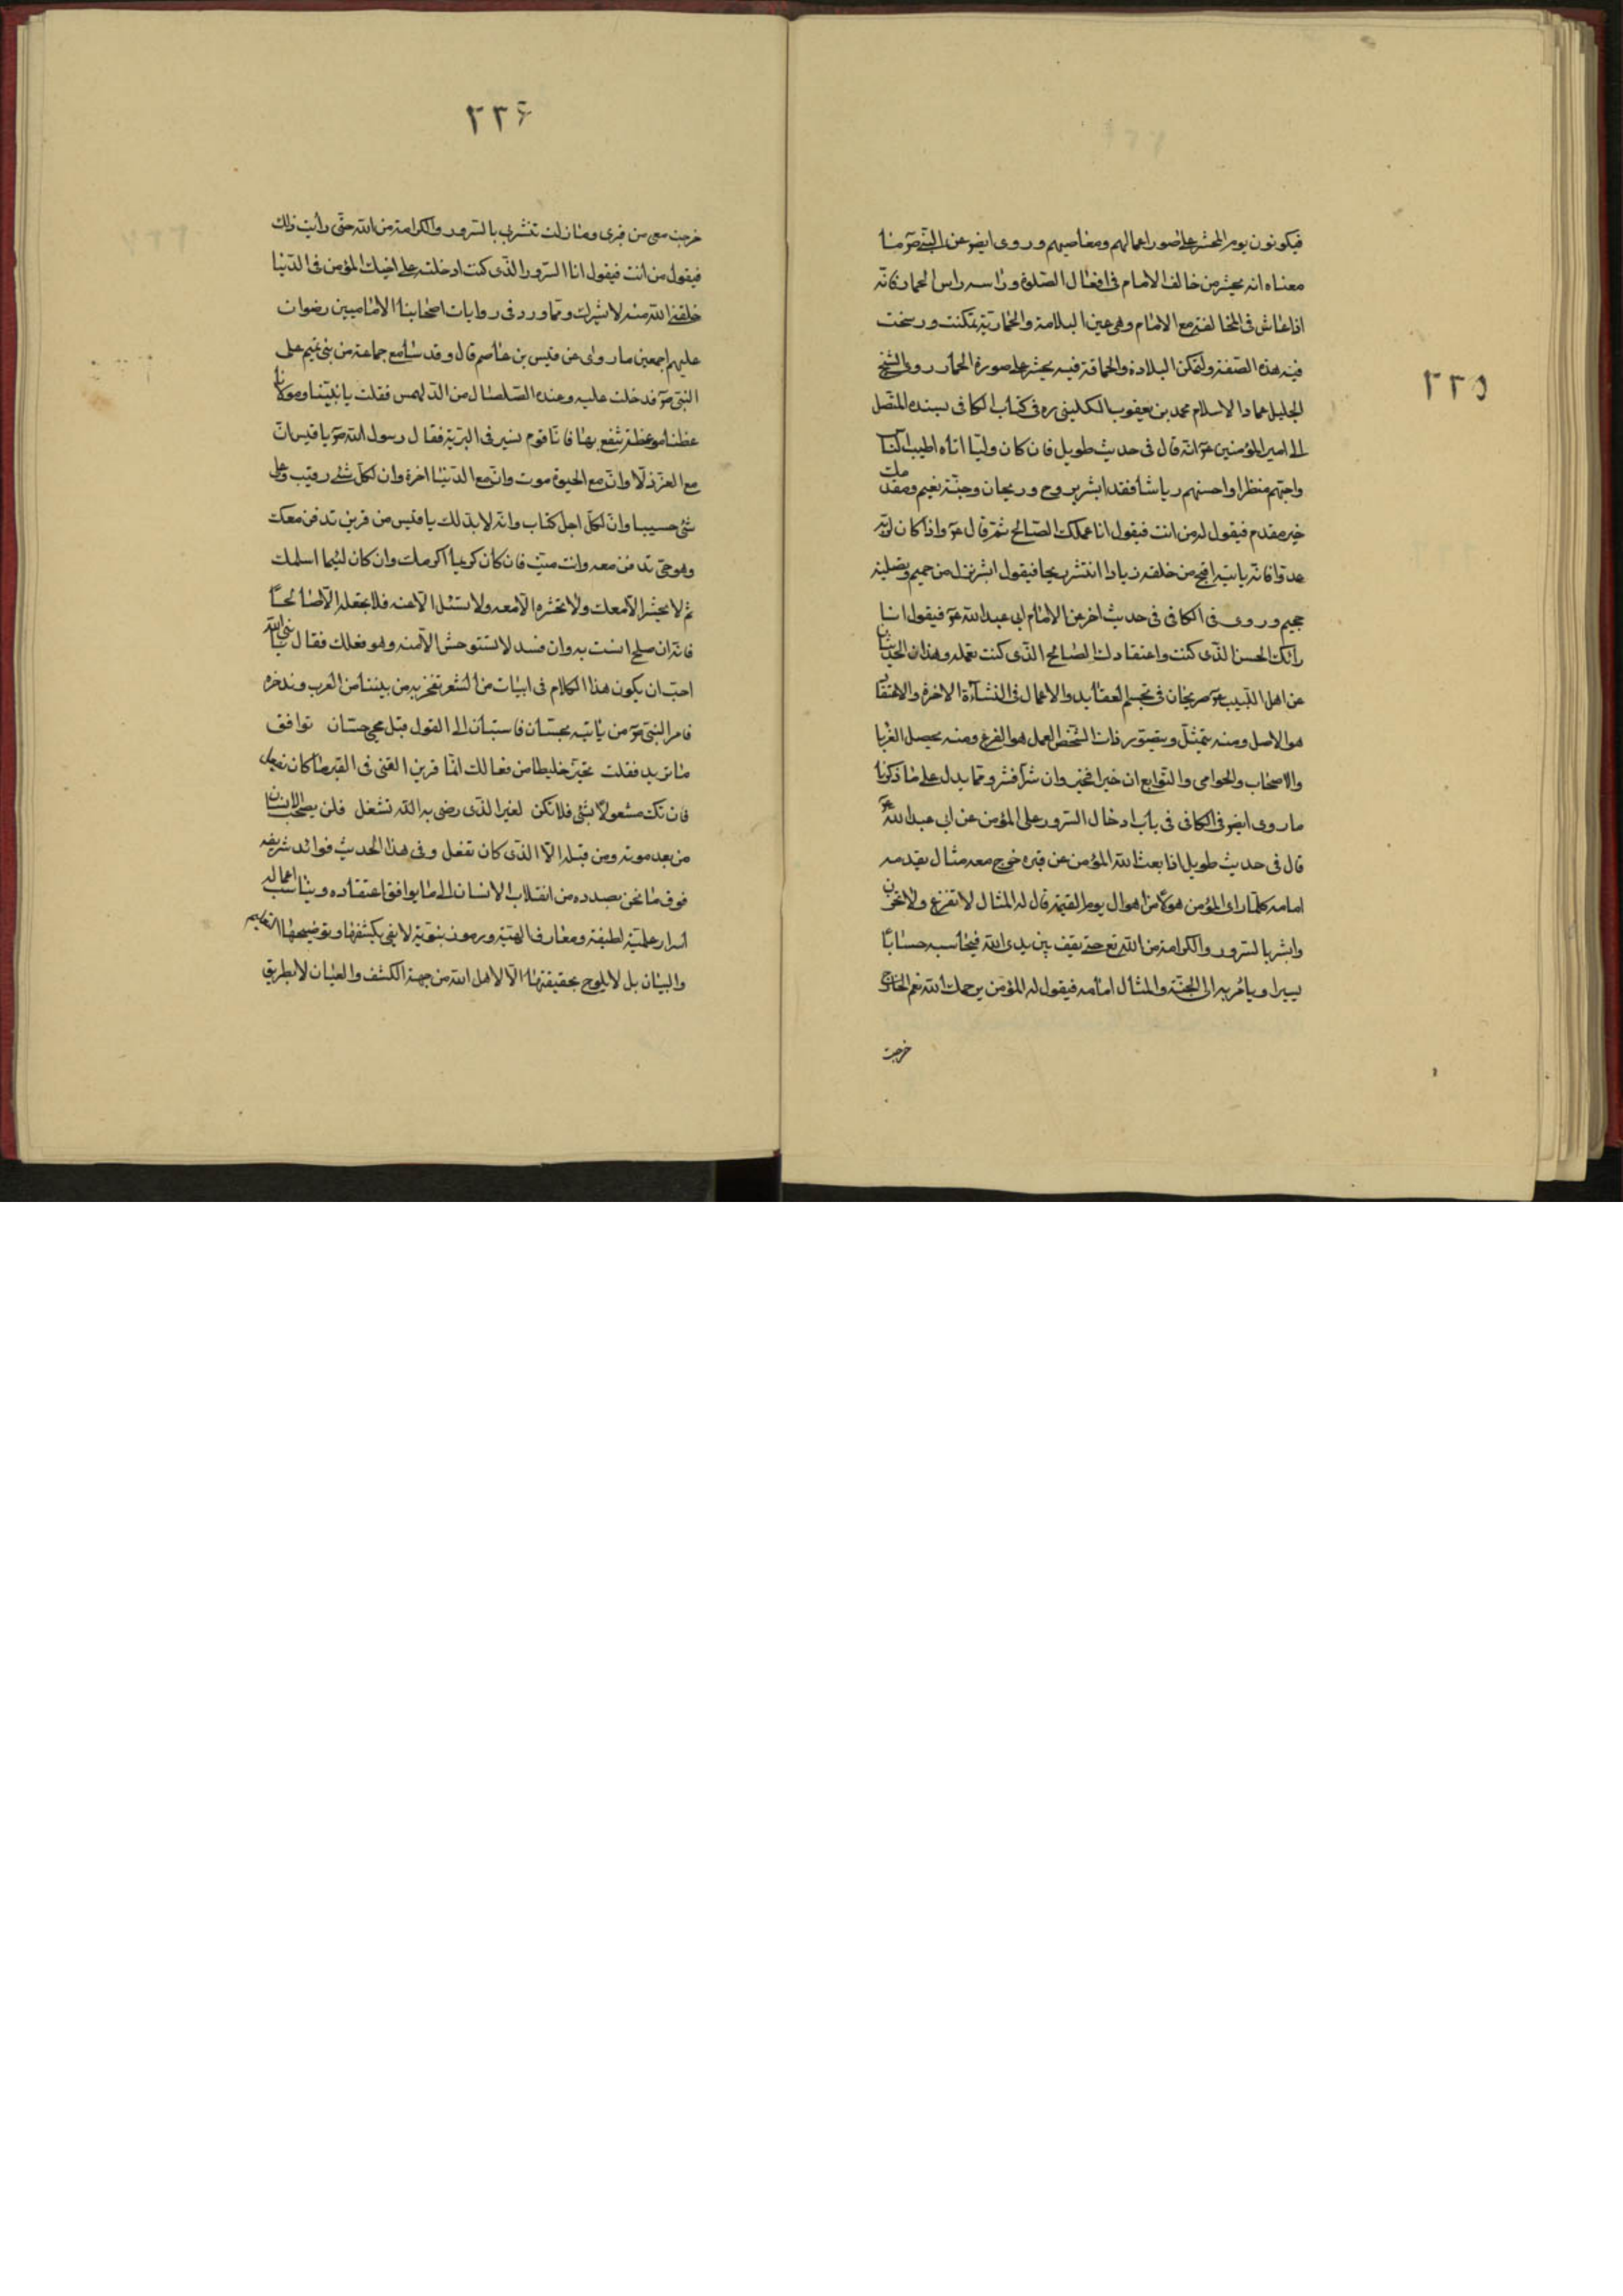 ٢٣٥
فيكونون يوم المحشر على صور اعمالهم ومعاصيهم وروى ايضو عن النبى صو ما
معناه انه يحشر من خالف الامام فى افعال الصلوة وراسه راس الحمار فانه
اذا عاش فى المخالفة مع الامام وهى عين البلاهة والحمارية تمكنت ورسخت
فيه هذه الصفة ولتمكن البلادة والحماقة فيه يحشر على صورة الحمار روى الشيخ
الجليل عماد الاسلام محمد بن يعقوب الكلينى ره فى كتاب الكافى بسنده المتصل
الى امير المؤمنين عو انه قال فى حديث طويل فان كان وليا اتاه اطيب الناس
واجبهم منظرا واحسنهم رياشا فقد ابشر بروح وريحان وجنة نعيم ومقدمك
خير مقدم فيقول له من انت فيقول انا عملك الصالح ثم قال عو واذا كان لربه
عدوا فانه ياتيه اقبح من خلقه زيادا انتشر ريحا فيقول ابشر بنزل من حميم وتصلية
جحيم وروى فى الكافى فى حديث اخر عن الامام ابى عبد الله عو فيقول انا
رائك الحسن الذى كنت واعتقادك الصالح الذى كنت تعمله وهذان الحديثان
عن اهل البيت عو صريحان فى تجسم العقايد والاعمال فى النشاءة الاخرة والاعتقاد
هو الاصل ومنه يتمثل ويتصور ذات الشخص والعمل هو الفرع ومنه يحصل القربا
والاصحاب والحوامى والتوابع ان خيرا فخير وان شرا فشر ومما يدل على ما ذكرنا
ما روى ايضو فى الكافى فى باب ادخال السرور على المؤمن عن ابى عبد الله عو
قال فى حديث طويل اذا بعث الله المؤمن من قبره خرج معه مثال يقدمه
امامه كلما راى المؤمن هولا من اهوال يوم القيمة قال له المثال لا تفزع ولا تحزن
وابشر بالسرور والكرامة من الله تع حتى يقف بين يدى الله فيحاسبه حسابا
يسيرا ويامر به الى الجنة والمثال امامه فيقول له المؤمن يرحمك الله نعم الخارج
خرجت
٢٣۶
خرجت معى من قبرى وما زلت تبشرنى بالسرور والكرامة من الله حتى رأيت ذلك
فيقول من انت فيقول انا السرور الذى كنت ادخلته على اخيك المؤمن فى الدنيا
خلقنى الله منه لابشرك ومما ورد فى روايات اصحابنا الاماميين رضوان
عليهم اجمعين ما روى عن قيس بن عاصم قال وفدت مع جماعة من بنى تميم على
النبى صو فدخلت عليه وعنده الصلصال من الدلهمس فقلت يا نبينا ومولانا
عظنا موعظة ننتفع بها فانا قوم نسير فى البرية فقال رسول الله صو يا قيس ان
مع العز ذلا وان مع الحيوة موت وان مع الدنيا اخرة وان لكل شئ رقيب وعلى كل
شئ حسيبا وان لكل اجل كتاب وانه لابد لك يا قيس من قرين تدفن معك
وهو حى تدفن معه وانت ميت فان كان كريما اكرمك وان كان لئيما اسلمك
ثم لا يحشر الا معك ولا تحشره الا معه ولا تسئل الا عنه فلا تجعله الا صالحا
فانه ان صلح انست به وان فسد لا تستوحش الا منه وهو فعلك فقال يا نبى الله
احب ان يكون هذا الكلام فى ابيات من الشعر نفخر به من بيننا من العرب وندخره
فامر النبى صو من ياتيه بحسان فاستبان الى القول قبل مجئ حسان توافق
ما تريد فقلت تخير خليطا من فعالك انما قرين الفتى فى القبر ما كان يفعل
فان تك مشغولا بشئ فلا تكن لغير الذى رضى به الله تشغل فلن يصحب الانسان
من بعد موته ومن قبله الا الذى كان تفعل وفى هذا الحديث فوائد شريفه
فوق ما نحن بصدده من انقلاب الانسان الى ما يوافق اعتقاده ويناسب اعماله
اسرار علمية لطيفة ومعارف الهية ورموز نبوية لا يفى بكشفها وتوضيحها التعليم
والبيان بل لا يلوح بحقيقتها الا لاهل الله من جهة الكشف والعيان لا بطريق